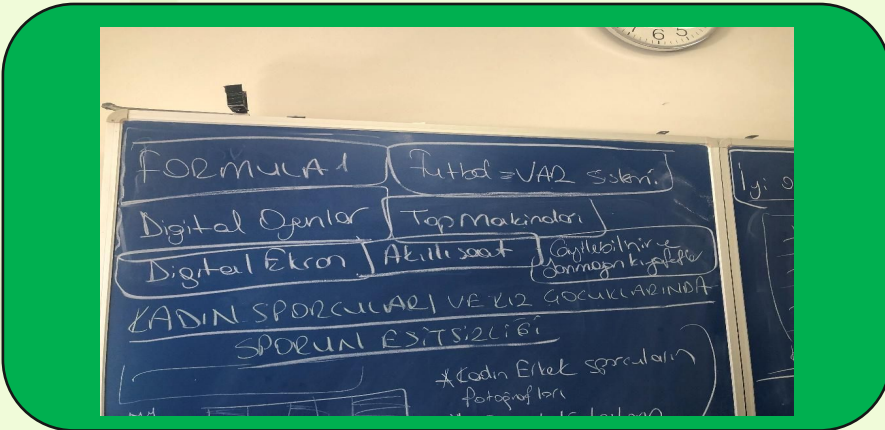 6 5
FORMULA 1
Futbol = VAR Sistemi
Digital Oyunlar
Top Makinaları
Digital Ekran
Akıllı saat
Giyilebilir ve
KADIN SPORCULARI VE KIZ ÇOCUKLARINDA
SPORUN EŞİTSİZLİĞİ
* Kadın Erkek sporcuların
fotoğrafları
İyi